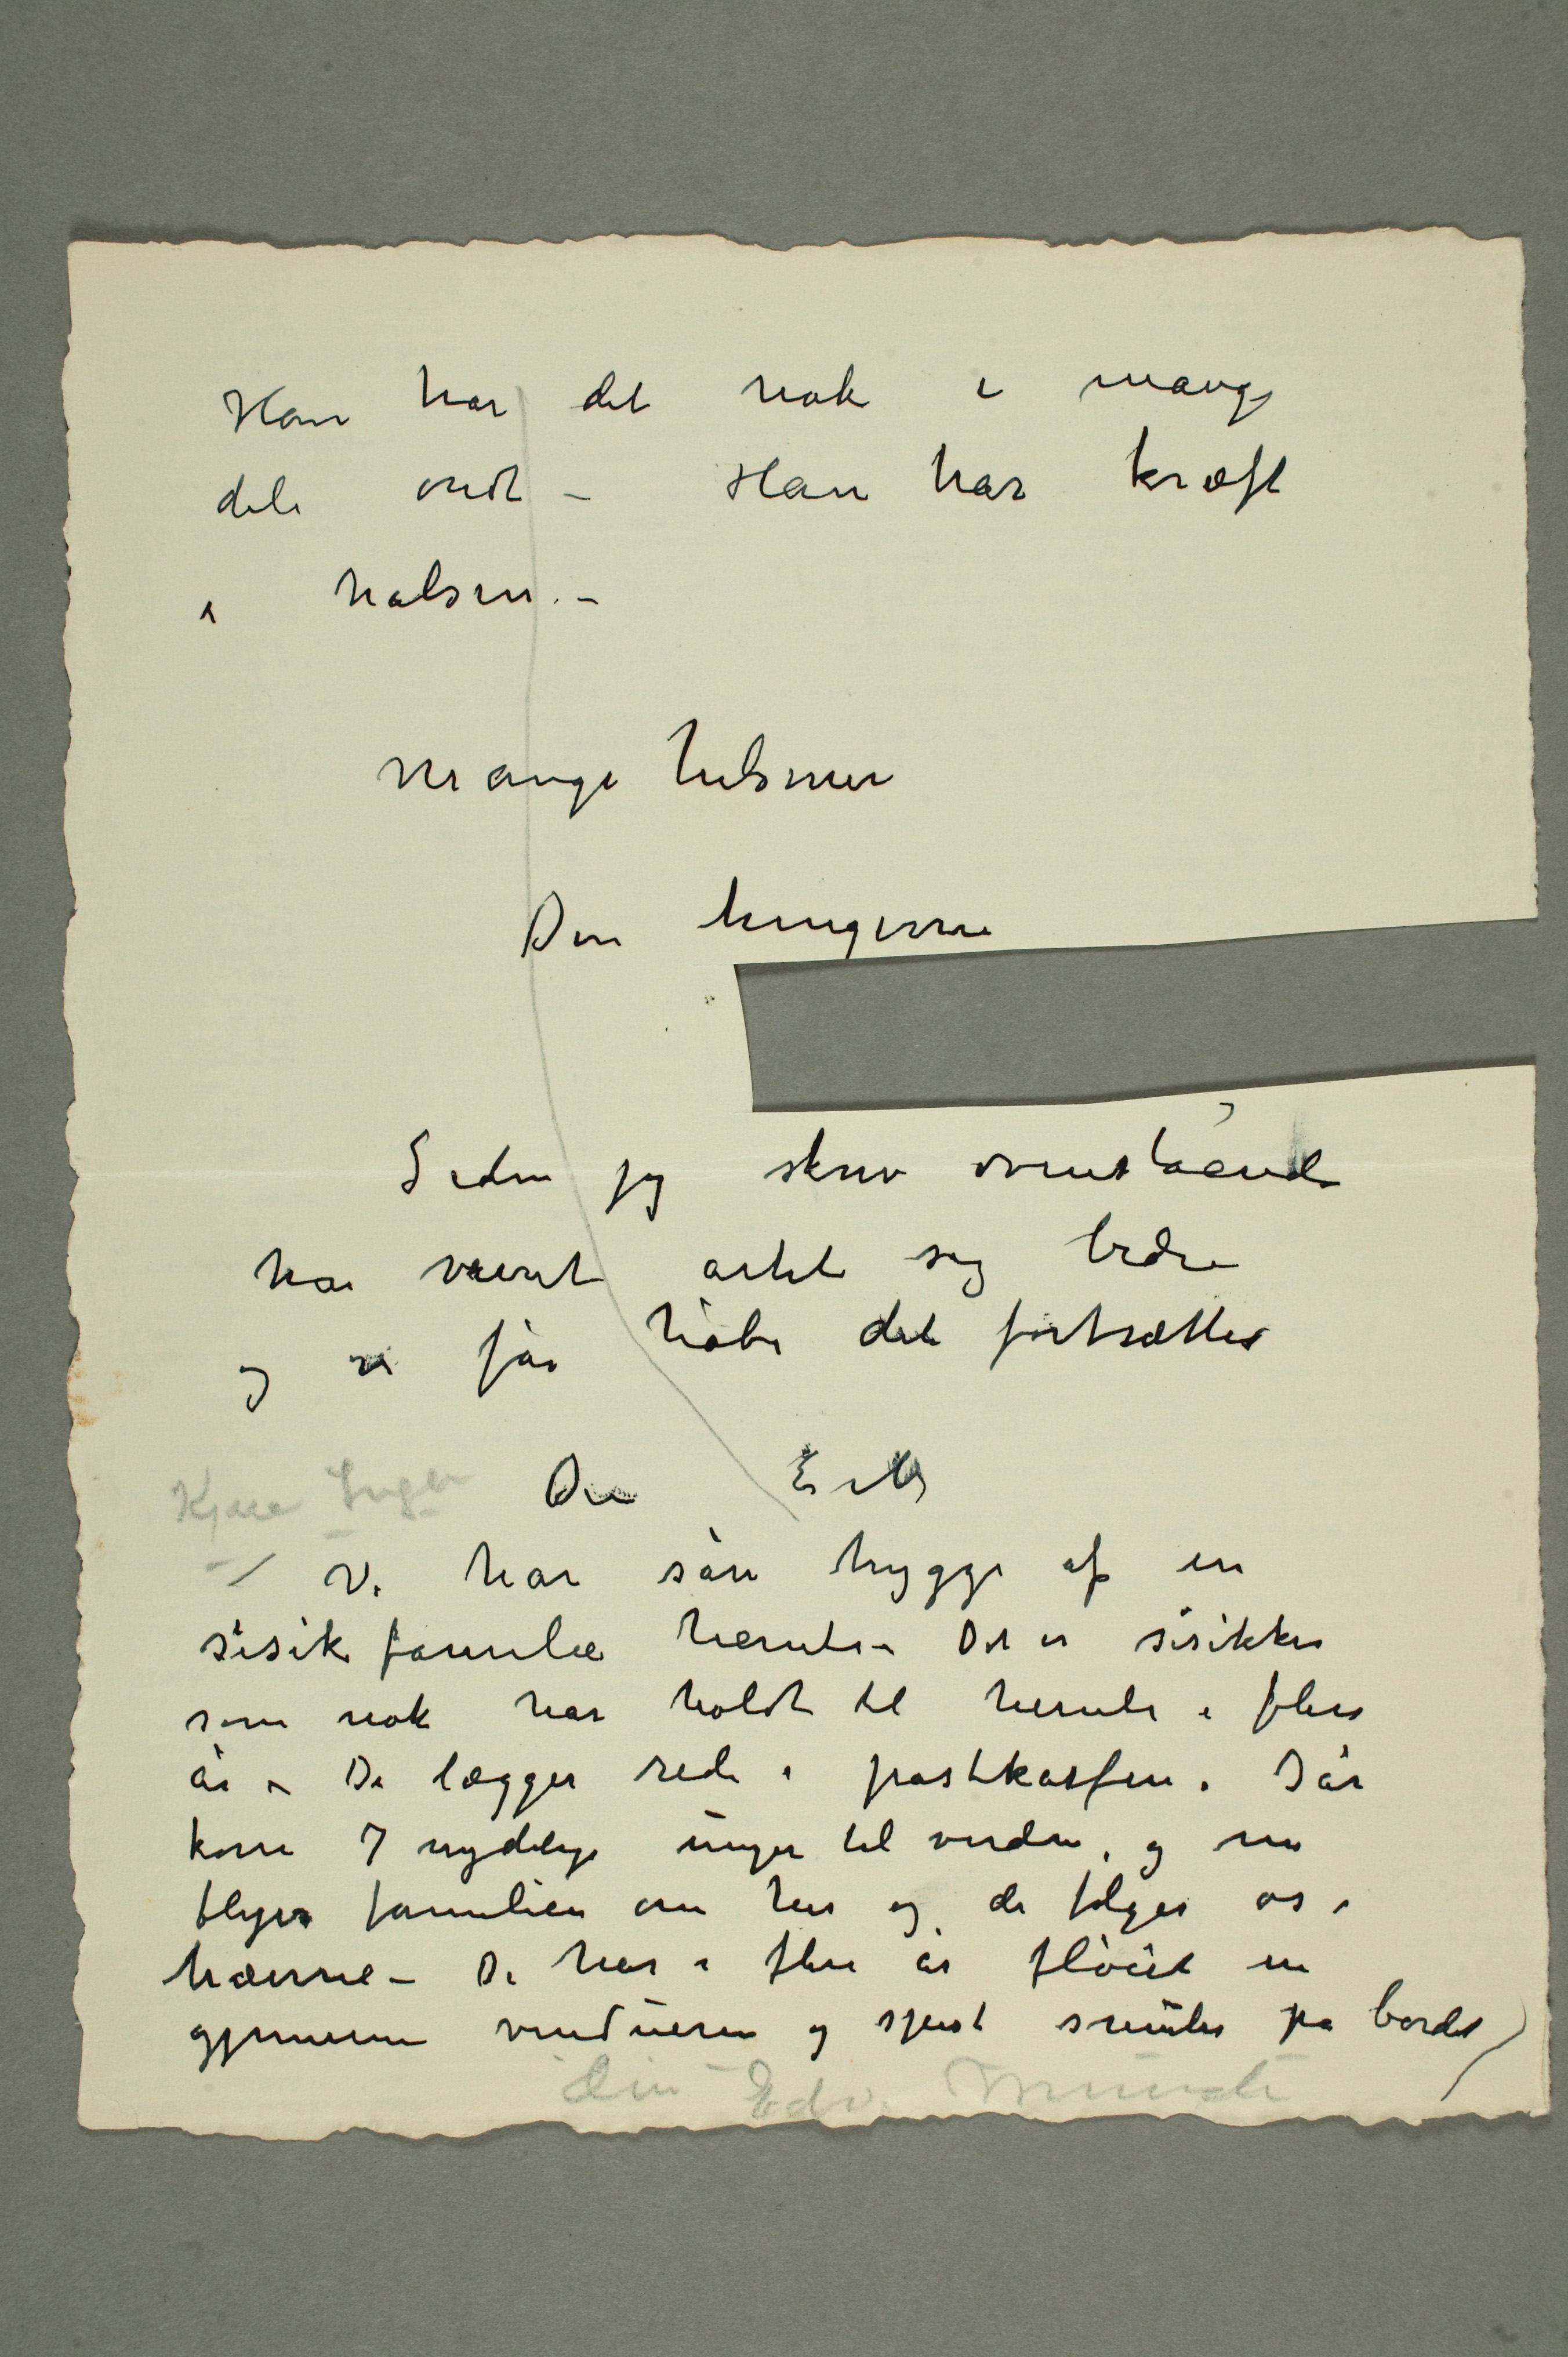 Han har det nok i mange
dele ondt – Han har kræft
i halsen. –
Mange hilsener
Din hengivne
Siden jeg skrev ovenstående
har været artet sig bedre
og vi får håbe det fortsættes
Kjære Inger Din E M
Vi har sån hygge af en
sisik familie hernede – Det er sisikker
som nok har holdt til hernede i flere
år – De lægger rede i postkassen. I år
kom 7 nydelige unger til verden, og nu
flyver familien om her og de følger os i
haverne – De har i flere år fløiet in
gjennem vinduerne og spist smuler på bordet
Din Edv. Munch